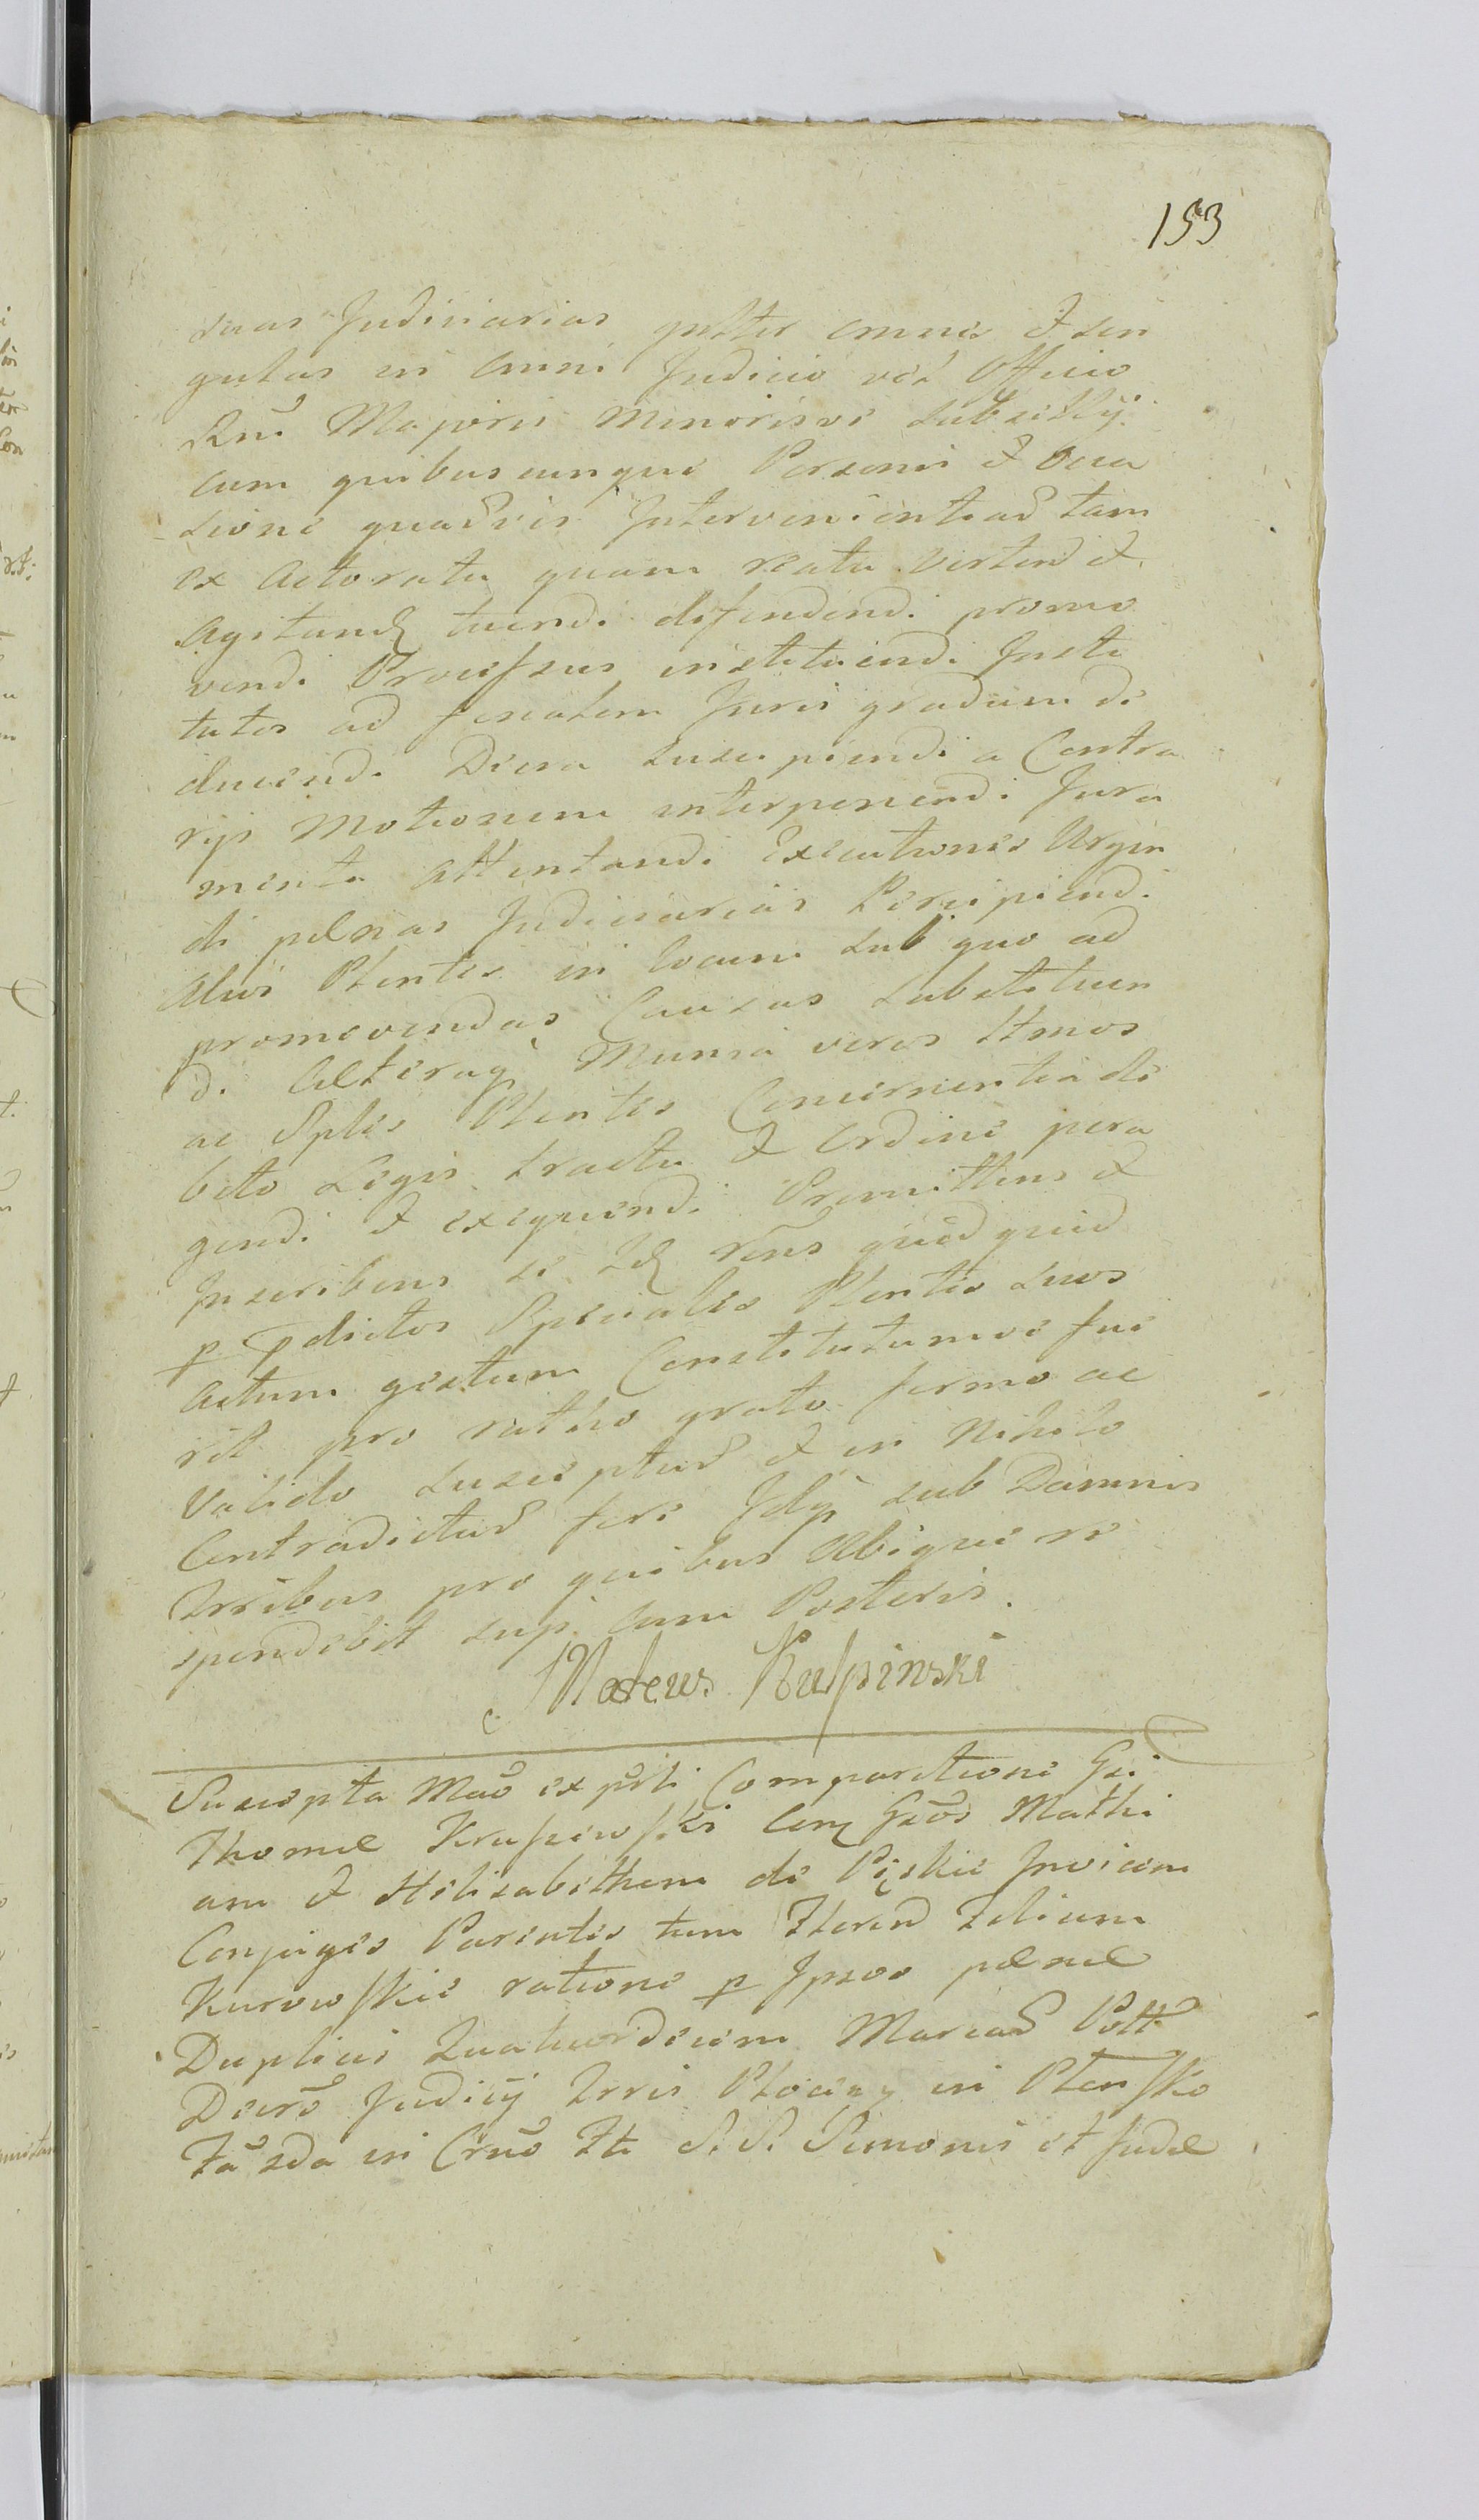 153
suas Judiciarias gnlter omnes et sin
gulas in omni Judicio vel Officio
Rni Majoris Minorisve subsellij
cum quibuscunque Personis et occa
sione quavis Intervenientiad tam
ex Actoratu quam reatu vertend et
agitand tuendi defendendi promo
vendi Processus instituendi Insti
tutos ad finalem Juris gradum de
ducendi Decra suscipiendi a Contra
rijs Motionem interponendi Jura
menta attentandi Executiones Urgen
di pœnas Judiciarias Percipiendi
alios Plentes in locum sub quo ad
promovendas Causas substituen
di Alteraq Munia veros Ltmos
ac Sples Plentes Concernentia de
bito Legis tractu et ordine pera
gendi et exequendi Promittens et
Inscribens se Id Rens quidquid
p pdictos Speciales Plentes suos
actum gestum Constitutumve fue
rit pro ratho grato firmo ac
valido susceptur et in Nihilo
Contradictur fore Idq sub Damnis
Trribus pro quibus Ubique re
spondebit sup. cum Posteris.
Mateus Rulpinski
Suscepta Mao ex psti Comparitione Gsi
Thomæ Kraszewski Coram Gsos Mathi
am et Helisabetham de Pięskie Invicem
Conjuges Parentes tum Florend Filium
Kurowskie ratione p Ipsos pœnæ
Duplicis Quatuordecim Marcar Poll
Decro Judicij Trris Plocen in Plensko
Fa 2da in Crno Fti S. S. Simonis et Judæ